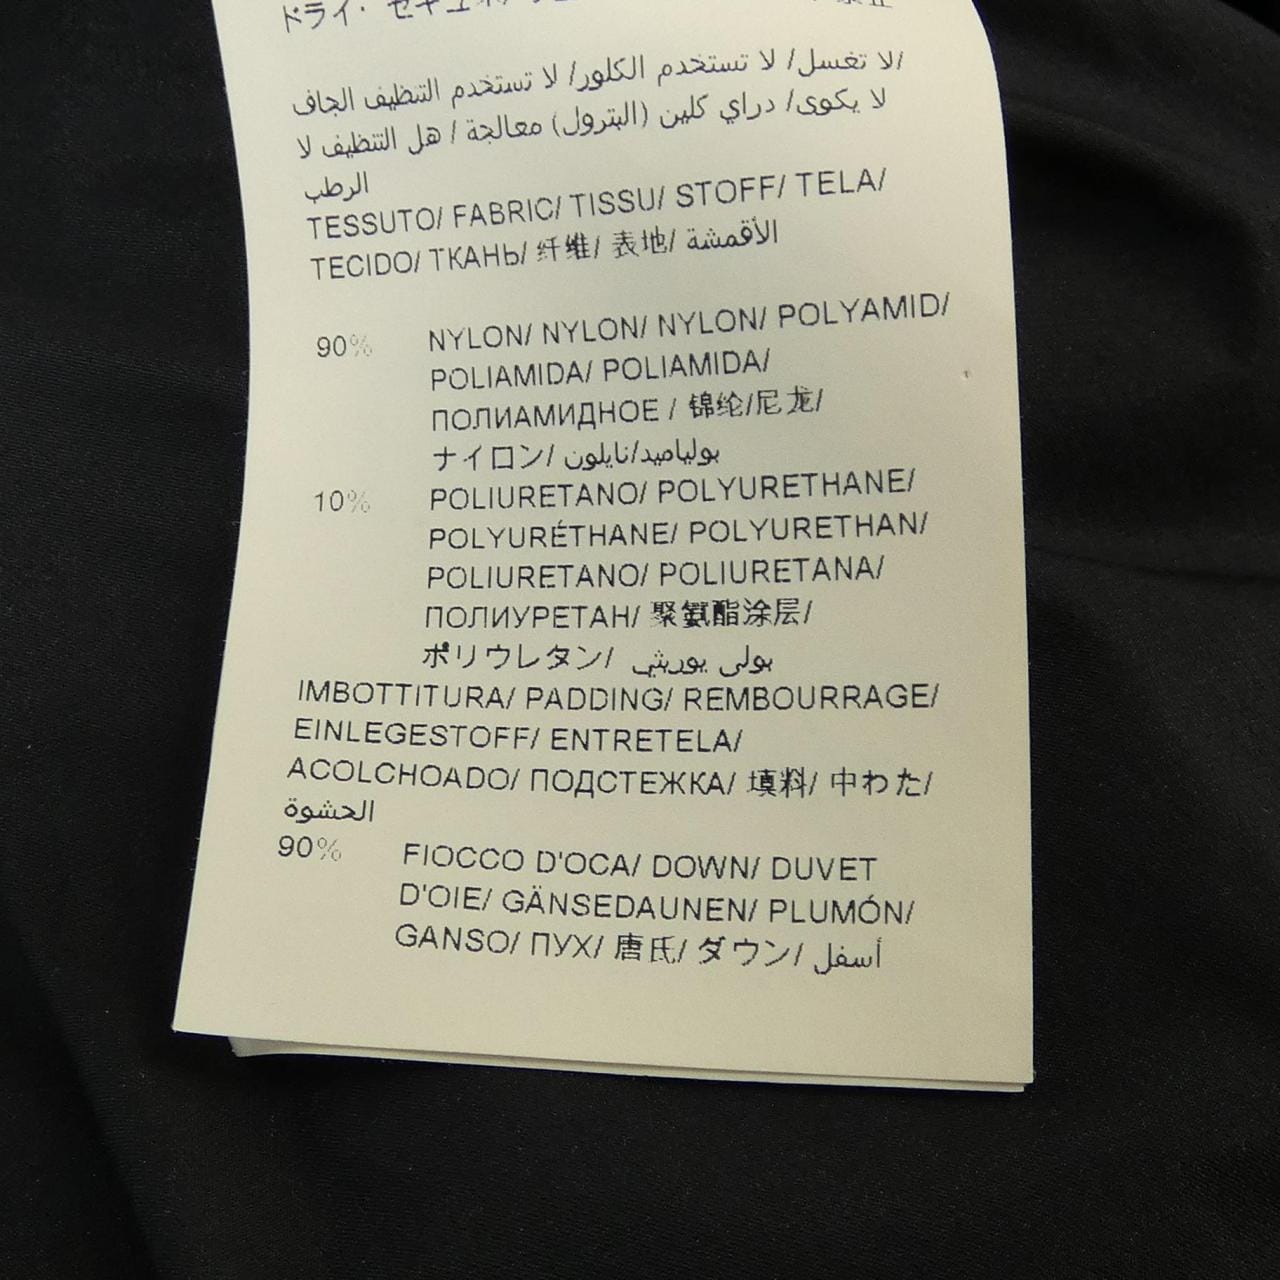 ドライ・セキュ
لا تغسل/ لا تستخدم الكلور/ لا تستخدم التنظيف الجاف/
لا يكوى/ دراي كلين (البترول) معالجة / هل التنظيف لا
الرطب
TESSUTO/ FABRIC/ TISSU/ STOFF/ TELA/
TECIDO/ ТКАНЬ/ 纤维/ 表地/ الأقمشة
90% NYLON/ NYLON/ NYLON/ POLYAMID/
POLIAMIDA/ POLIAMIDA/
ПОЛИАМИДНОЕ / 锦纶/尼龙/
ナイロン/ بولياميد/نايلون
10% POLIURETANO/ POLYURETHANE/
POLYURÉTHANE/ POLYURETHAN/
POLIURETANO/ POLIURETANA/
ПОЛИУРЕТАН/ 聚氨酯涂层/
ポリウレタン/ بولى يوريثي
IMBOTTITURA/ PADDING/ REMBOURRAGE/
EINLEGESTOFF/ ENTRETELA/
ACOLCHOADO/ ПОДСТЕЖКА/ 填料/ 中わた/
الحشوة
90% FIOCCO D'OCA/ DOWN/ DUVET
D'OIE/ GÄNSEDAUNEN/ PLUMÓN/
GANSO/ ПУХ/ 唐氏/ ダウン/ أسفل